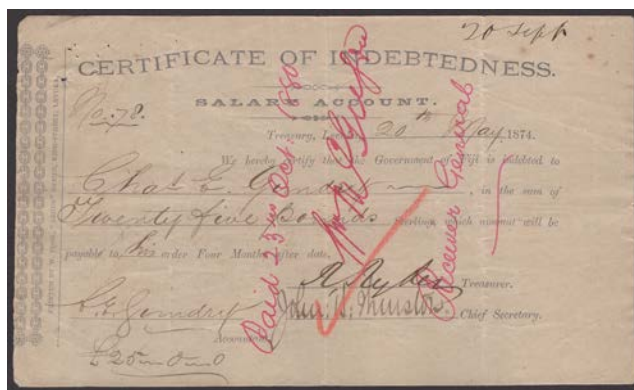 20 Sept
CERTIFICATE OF INDEBTEDNESS.
SALARY ACCOUNT.
No. 78.
Treasury, 20th May 1874.
We hereby certify that the Government of Fiji is indebted to
Chas E. , in the sum of
Twenty five Pounds Sterling, which amount will be
payable to his order Four Months after date,
Treasurer.
John B. Thurston
Chief Secretary.
Accountant
£25-0-0
Paid 23rd Oct: 1880
Receiver General